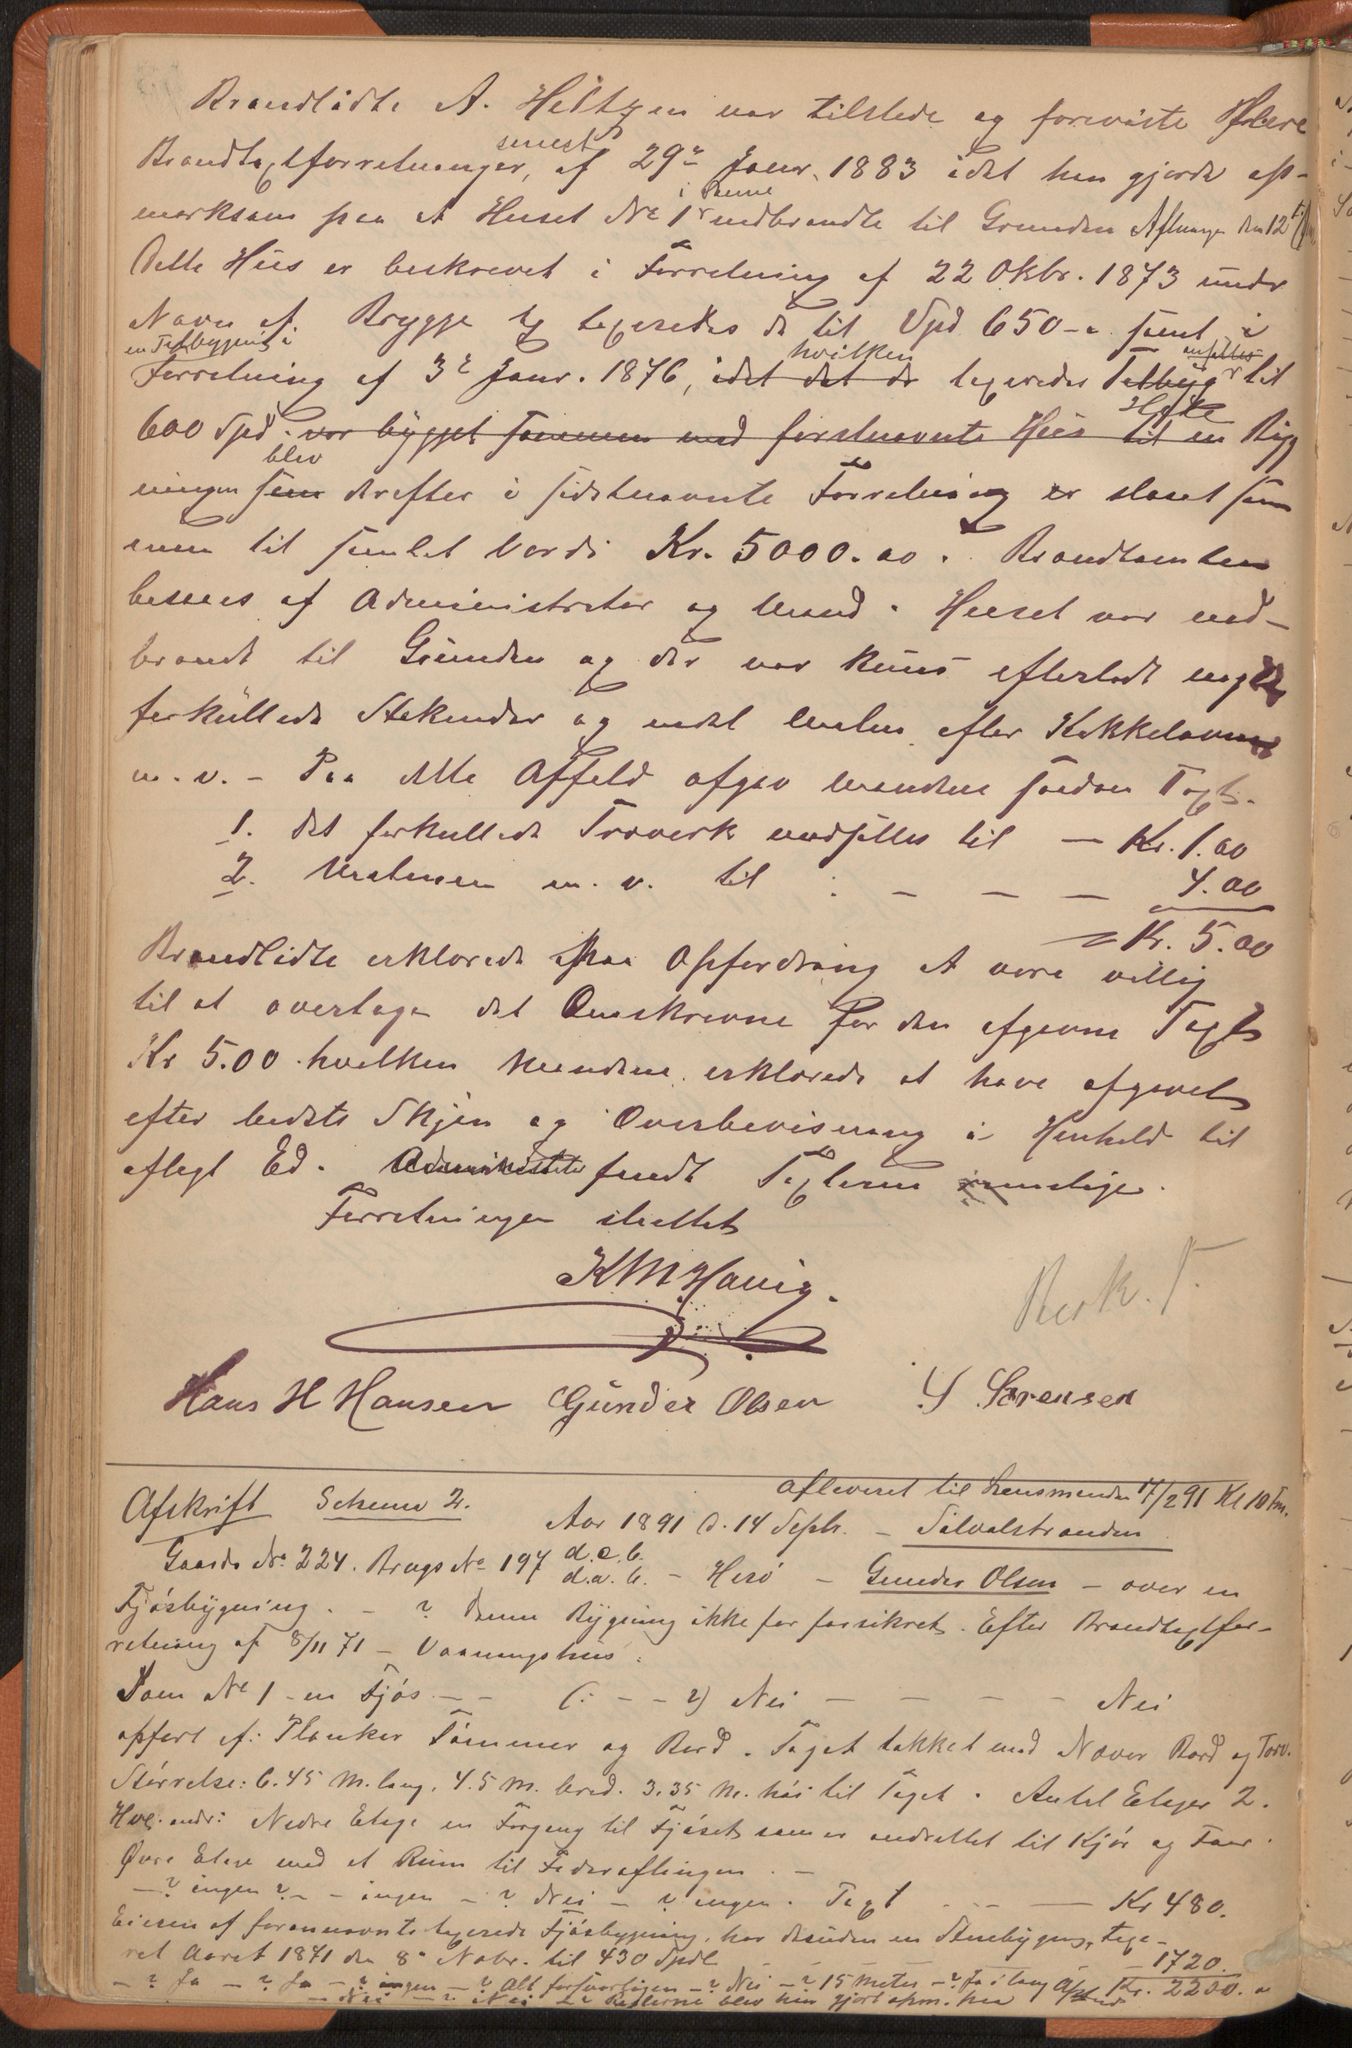 Brandlidte A. Heltzen var tilstede og foreviste flere
Brandtaxtforretninger, senest af 29de Janr. 1883 idet han gjorde op-
mærksom paa at Huset No 1 i denne nedbrændte til Grunden Aftenen den 12te
Dette Hus er beskrevet i Forretning af 22 Oktbr. 1873 under
Navn af Brygge og taxeredes da til Spd 650 - samt i
Forretning af 3de Janr. 1876, idet det da hvilken taxeredes Tilbyg til
en Tilbygning i
600 Spd. var bygget sammen med førstnævnte Hus til en Byg
ningen som blev derefter i sidstnævnte Forretning er slaaet sam
men til samlet Værdi Kr. 5000.00. Brandtomten
besaaes af Administrator og Mænd. Huset var ned-
brændt til Grunden og der var kuns efterladt nogle
forkullede Stokender og endel Mursten efter Kakkelovne
m.v. - Paa dette Affald afgav Mændene saadan Taxt.
1. det forkullede Træverk ansættes til — Kr. 1.00
2. Mursten m.v. til : — — — 4.00
Kr. 5.00
Brandlidte erklærede paa Opfordring at være villig
til at overtage det Omskrevne for den afgivne Taxt
Kr 5.00 hvilken Mændene erklærede at have afgivet
efter bedste Skjøn og Overbevisning i Henhold til
aflagt Ed. Administrator fandt Taxterne rimelige.
Forretningen sluttet
K M Havig.
Besk. T.
Hans H Hansen Gunder Olsen S Sørensen
afleveret til Lensmanden 17/9 91 Kl 10 Fm.
Afskrift Schema 2.
Aar 1891 d. 14 Septr. - Silvalstranden
Gaards No 224. Brugs No 197 d.a.b. d.a.b. - Herø - Gunder Olsen - over en
Fjøsbygning. - ? denne Bygning ikke før forsikret. Efter Brandtaxtfor-
retning af 8/11 71 - Vaaningshus.
Som No 1 - en Fjøs - - (: - - ?) Nei — — — — Nei
opført af: Planker Tømmer og Bord. Taget tækket med Næver Bord og Torv.
Størrelse: 6.45 M. lang. 4.5 M. bred. 3.35 M. høi til Taget. Antal Etager 2.
Hoc. indr: Nedre Etage en Forgang til Fjøset som er indrettet til Kjør og Faar.
Øvre Etage med et Rum til Foderaflingen. -
- ? ingen ? - - ingen - ? Nei - ? ingen. Taxt — — Kr 480.
Eieren af forannævnte taxerede Fjøsbygning, har desuden en Stuebygng, taxe-
ret Aaret 1871 den 8de Novbr. til 430 Spdl — 1720.
- ? Ja - ? Ja - ? ingen - ? Alt forsvarligen - ? Nei - ? 15 Meter - ? Ja i lang Afstand Kr. 2200.
- Nei - ? Nei blev han gjort opm. paa